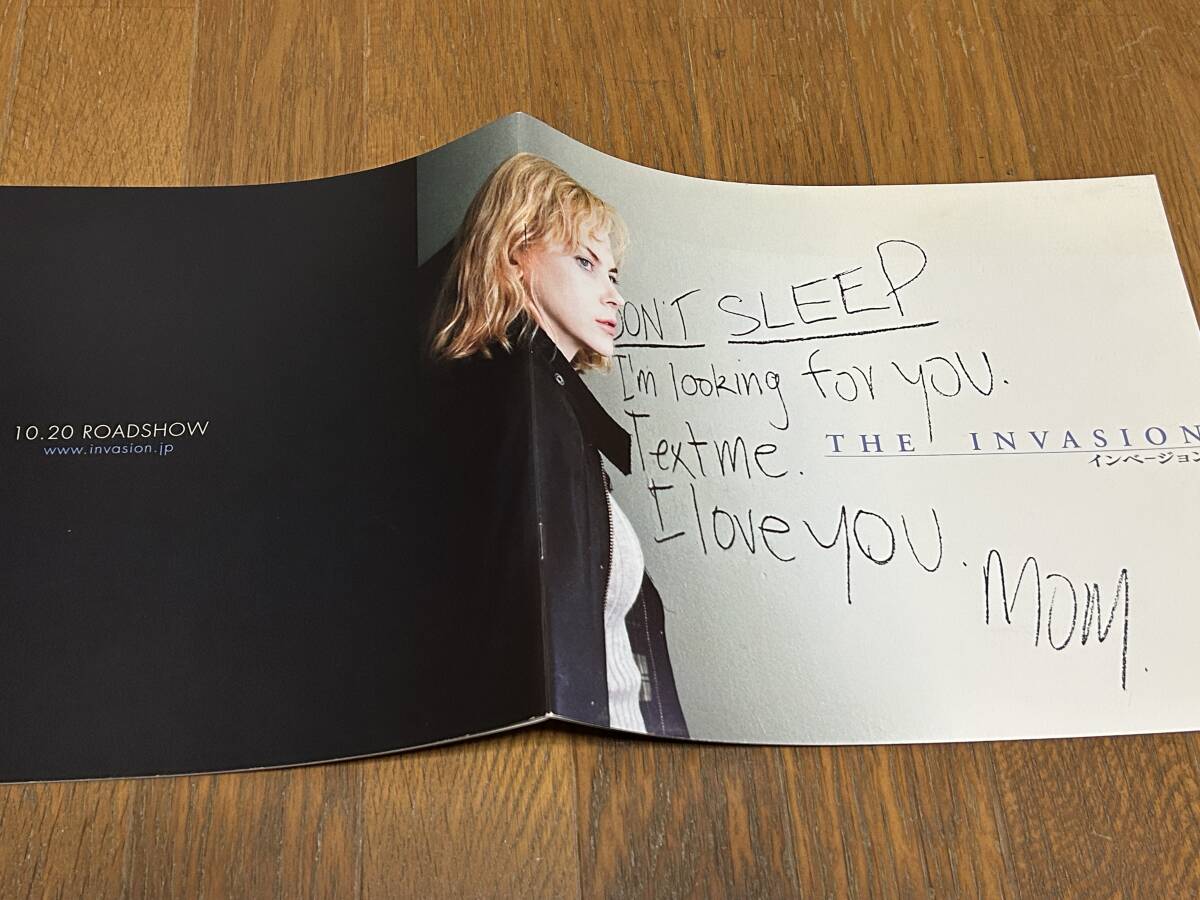 10.20 ROADSHOW
www.invasion.jp
ON'T SLEEP
I'm looking for you.
Text me.
THE INVASION
インベージョン
I love you.
MOM.